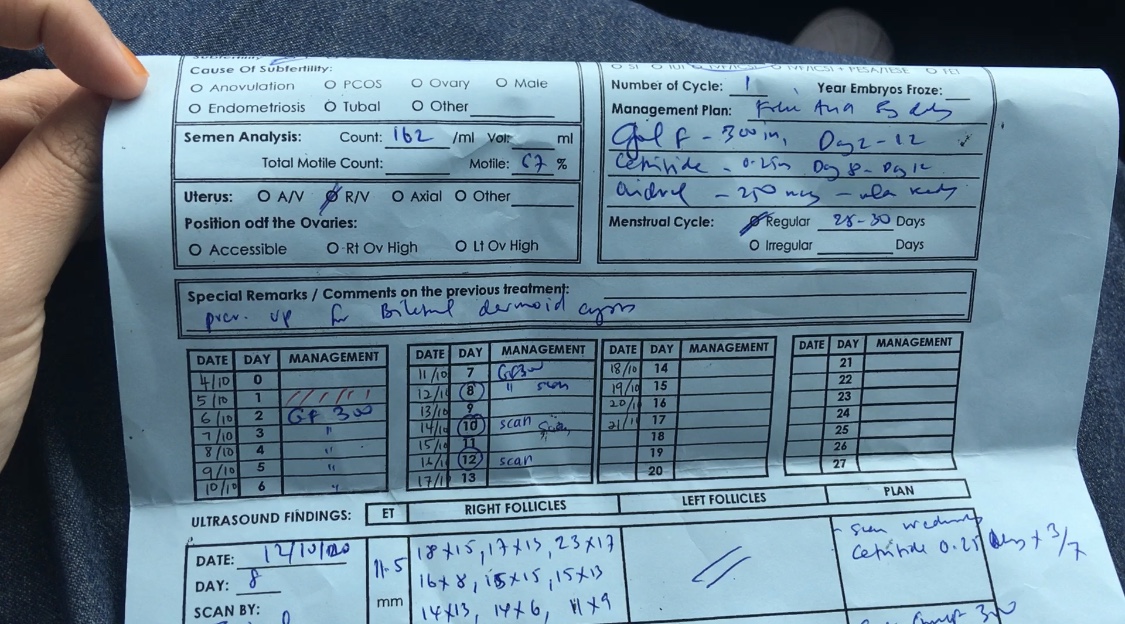 Cause Of Subfertility:
O Anovulation O PCOS O Ovary O Male
O Endometriosis O Tubal O Other
Semen Analysis: Count: 162 /ml Vol: ml
Total Motile Count: Motile: 67 %
Uterus: O A/V O R/V O Axial O Other
Position odf the Ovaries:
O Accessible O Rt Ov High O Lt Ov High
Number of Cycle: 1 Year Embryos Froze:
Management Plan:
Gonal F - 300 iu, Day 2 - 12
Cetrotide - 0.25 Day 8 - Day 12
Ovidrel - 250 mcg - when ready
Menstrual Cycle: O Regular 28-30 Days
O Irregular Days
Special Remarks / Comments on the previous treatment:
prev. up for Bilateral dermoid cysts
DATE DAY MANAGEMENT
4/10 0
5/10 1
6/10 2 GF 300
7/10 3 "
8/10 4 "
9/10 5 "
10/10 6 "
DATE DAY MANAGEMENT
11/10 7 GF300
12/10 8 " scan
13/10 9
14/10 10 scan
15/10 11
16/10 12 scan
17/10 13
DATE DAY MANAGEMENT
18/10 14
19/10 15
20/10 16
21/10 17
18
19
20
DATE DAY MANAGEMENT
21
22
23
24
25
26
27
ULTRASOUND FINDINGS: ET RIGHT FOLLICLES LEFT FOLLICLES PLAN
DATE: 12/10/20
DAY: 8
SCAN BY:
11.5
mm
18x15, 17x13, 23x17
16x8, 15x15, 15x13
14x13, 14x6, 11x9
- scan wednesday
Cetrotide 0.25 daily x 3/7
300